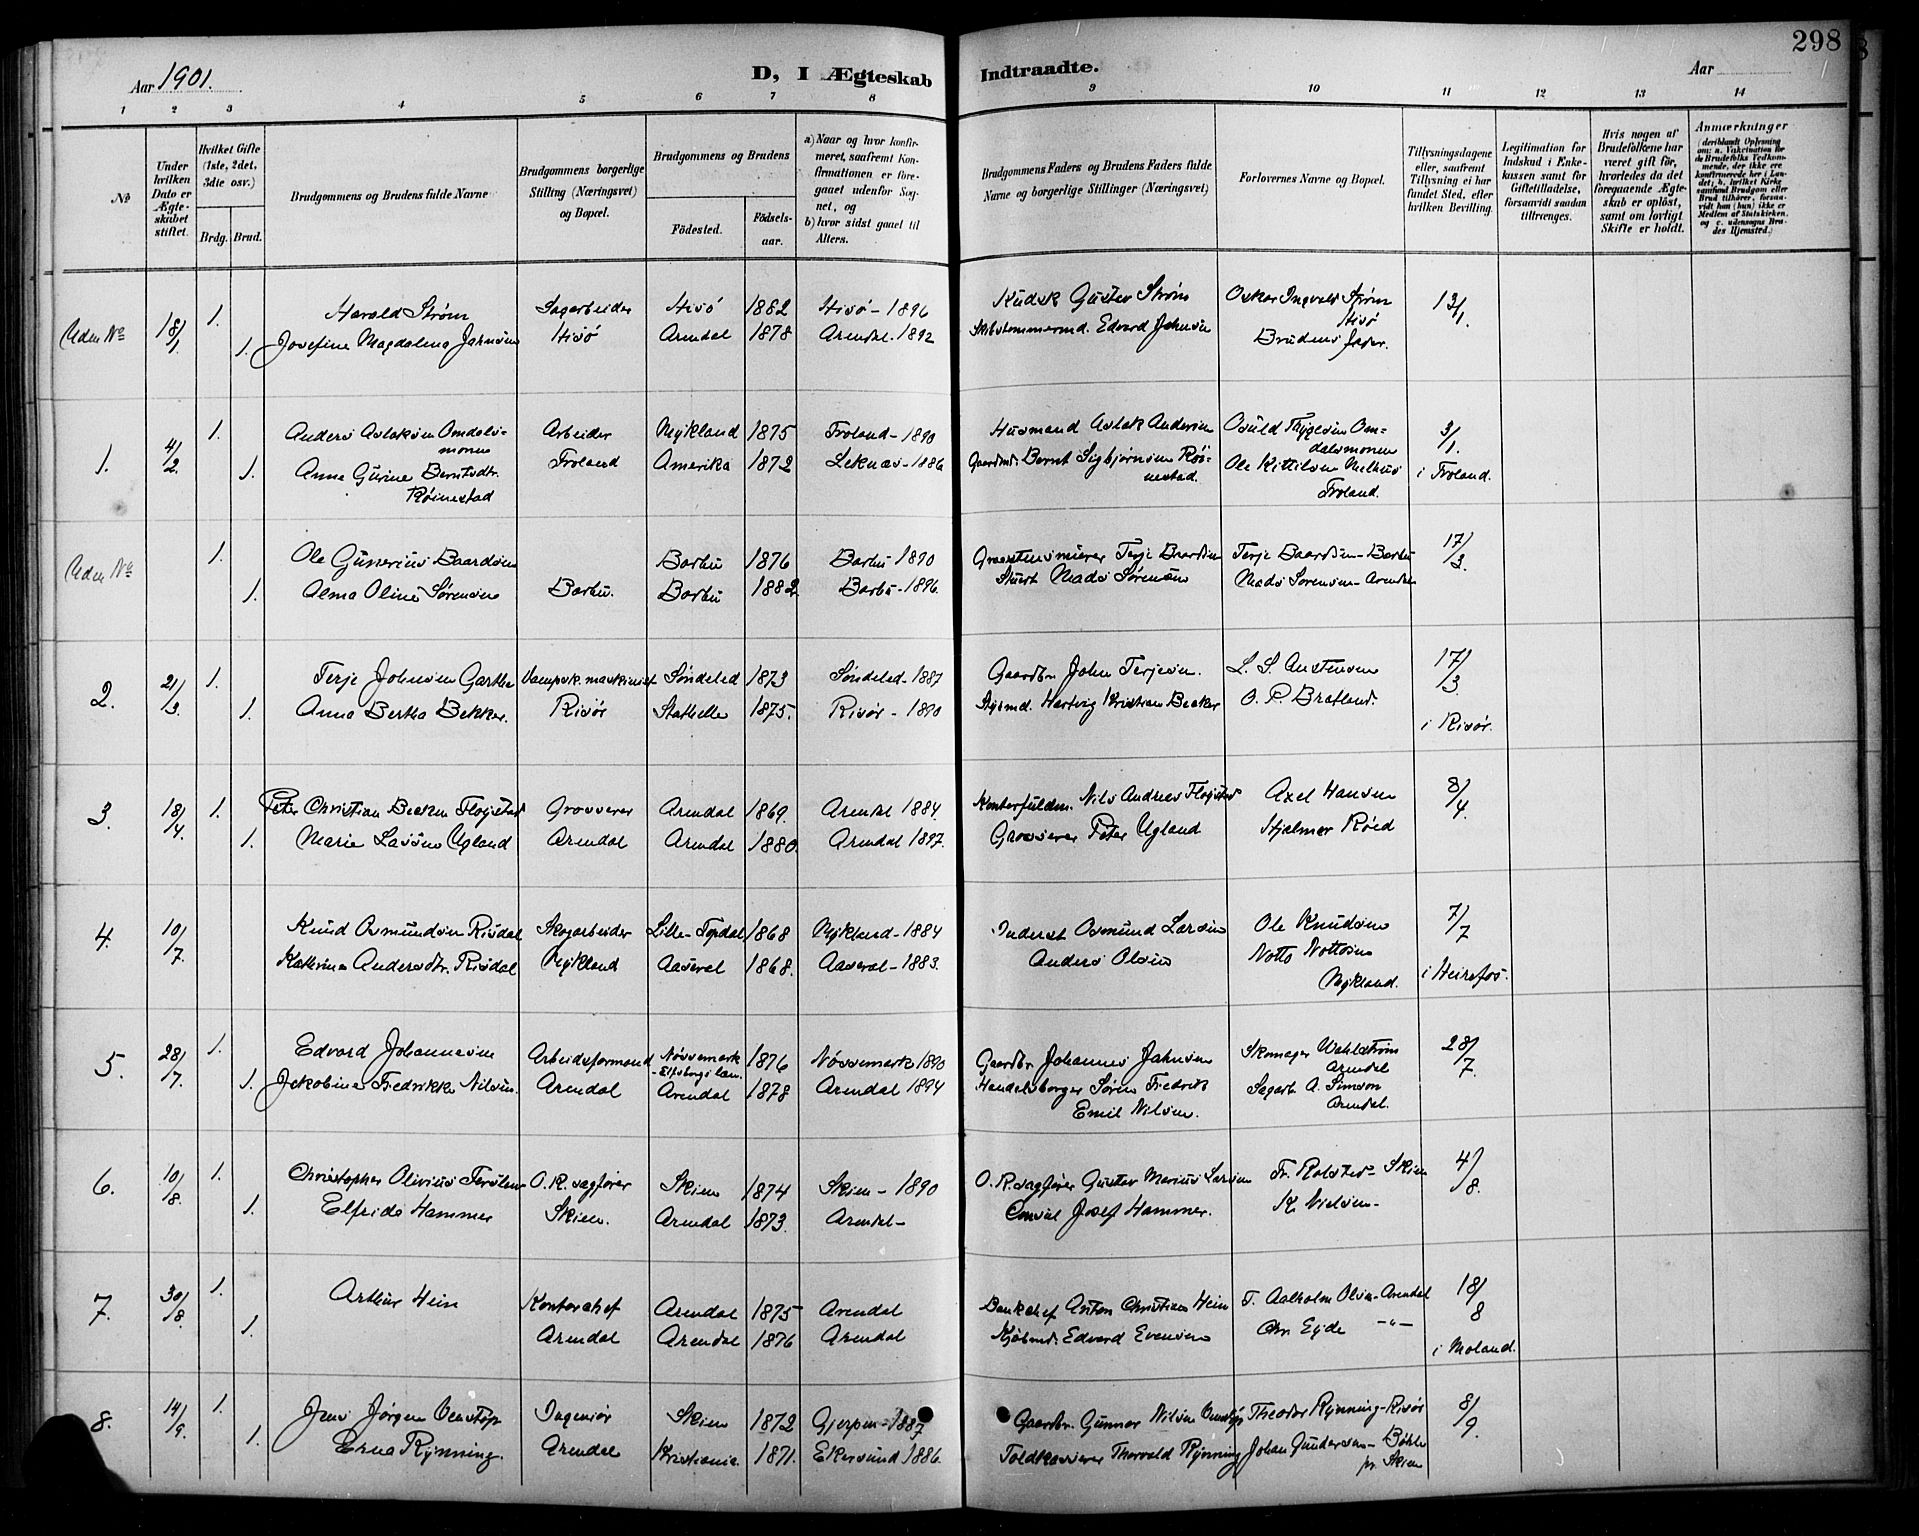 298
Aar 1901.
D, I Ægteskab Indtraadte.
Aar
1 2 3 4 5 6 7 8 9 10 11 12 13 14
No
Under hvilken Dato er Ægteskabet stiftet.
Hvilket Gifte (1ste, 2det, 3die osv.)
Brdg. Brud.
Brudgommens og Brudens fulde Navne
Brudgommens borgerlige Stilling (Næringsvei) og Bopæl.
Brudgommens og Brudens
Födested.
Födselsaar.
a) Naar og hvor konfirmeret, saafremt Konfirmationen er foregaaet udenfor Sognet, og
b) hvor sidst gaaet til Alters.
Brudgommens Faders og Brudens Faders fulde Navne og borgerlige Stillinger (Næringsvei)
Forlovernes Navne og Bopæl.
Tillysningsdagene eller, saafremt Tillysning ei har fundet Sted, efter hvilken Bevilling.
Legitimation for Indskud i Enkekassen samt for Giftetilladelse, forsaavidt saadan tiltrænges.
Hvis nogen af Brudefolkene har været gift för, hvorledes da det foregaaende Ægteskab er oplöst, samt om lovligt Skifte er holdt.
Anmærkninger (deriblandt Oplysning om: a. Vakcination for de Brudefolks Vedkommende, der ikke ere konfirmerede her i Landet; b. hvilket Kirkesamfund Brudgom eller Brud tilhører, forsaavidt han (hun) ikke er Medlem af Statskirken, og c. udensogns Brudes Hjemsted.)
Uden No 18/1. 1. Harald Strøm Sagarbeider Hisö 1882 Hisö - 1896 Kudsk Gustav Strøm Oskar Ingvald Strøm 13/1.
Hisö
1. Josefine Magdalena Jahnsen Hisö Arendal 1878 Arendal. 1892 Skibstømmermd. Edvard Jahnsen Brudens fader.
1. 4/2 1. Anders Aslaksen Omdalsmonen Arbeider Mykland 1875 Froland - 1890 Husmand Aslak Andersen Osuld Thygesen Omdalsmonen 3/1.
1. Anne Gurine Berntsdtr. Røinestad Froland Amerika 1872 Leknæs - 1886 Gaardmd. Bernt Sigbjørnsen Røinestad. Ole Kittilsen Melhus Froland. i Froland.
Uden No 1. Ole Gunerius Baardsen Barbu 1876 Barbu 1890 Terje Baardsen Terje Baardsen - Barbu 17/3.
1. Alma Oline Sørensen Barbu. Barbu 1882 Barbu - 1896. Mads Sørensen Mads Sørensen - Arendal
2. 21/3 1. Terje Johnsen Garthe Dampsk. maskinist Søndeled 1873 Søndeled - 1887 Gaardbr John Terjesen. L. S. Austensen 17/3
1. Anna Bertha Bekker. Risör Stathelle 1875. Risör - 1890 Styrmd. Hartvig Kristian Becker O. P. Bratland. i Risör.
3. 18/4. 1. Peter Christian Becken Fløistad Grosserer Arendal 1869. Arendal 1884. Nils Andreas Fløistad Axel Hansen 8/4
1. Marie Lassen Ugland Arendal Arendal 1880. Arendal 1897. Grosserer Peter Ugland Hjalmar Röed
4. 10/7. Knud Osmundsen Risdal Skogarbeider Lille-Topdal 1868 Mykland - 1884 Inderst Osmund Larsen Ole Knudsen 7/7
Kathrine Andersdtr. Risdal Mykland Aaseral 1868. Aaseral - 1883. Anders Olsen Notto Nottosen Mykland. i Heirefos.
5. 28/7. 1. Edvard Johannesen Arbeidsformand Nössemark - Elfsborgs læn. 1876 Nössemark 1890 Gaardbr Johannes Jahnsen Skomager Wahlström Arendal 28/7.
1. Jakobine Fredrikke Nilsen. Arendal Arendal 1878 Arendal 1894 Handelsborger Sören Fredrik Emil Nilsen. Sagarb. A. Simson Arendal.
6. 10/8. 1. Christopher Olivius O. R. sagfører Skien 1874 Skien - 1890 O. R. sagfører Gustav Marius Larsen Fr. Rolstad - Skien 4/8.
1. Elfrida Hammer Skien. Arendal 1873. Arendal - Consul Josef Hammer. K. Nielsen -
7. 30/8. 1. Arthur Hein Kontorchef Arendal 1875 Arendal Bankchef Anton Christian Hein T. Aalholm Olsen - Arendal 18/8
1. Arendal Arendal 1876 Arendal Kjøbmd. Edvard Evensen Chr Eyde -"- i Moland.
8. 14/9. 1. Jens Jørgen Ingeniør Skien 1872 Gjerpen - 1887 Gaardbr. Gunnar Nilsen Theodor Rynning - Risör 8/9.
1. Erna Rynning. Arendal Kristiania. 1871. Ekersund 1886. Toldkasserer Thorvald Rynning Johan Gundersen - Böhle pr. Skien